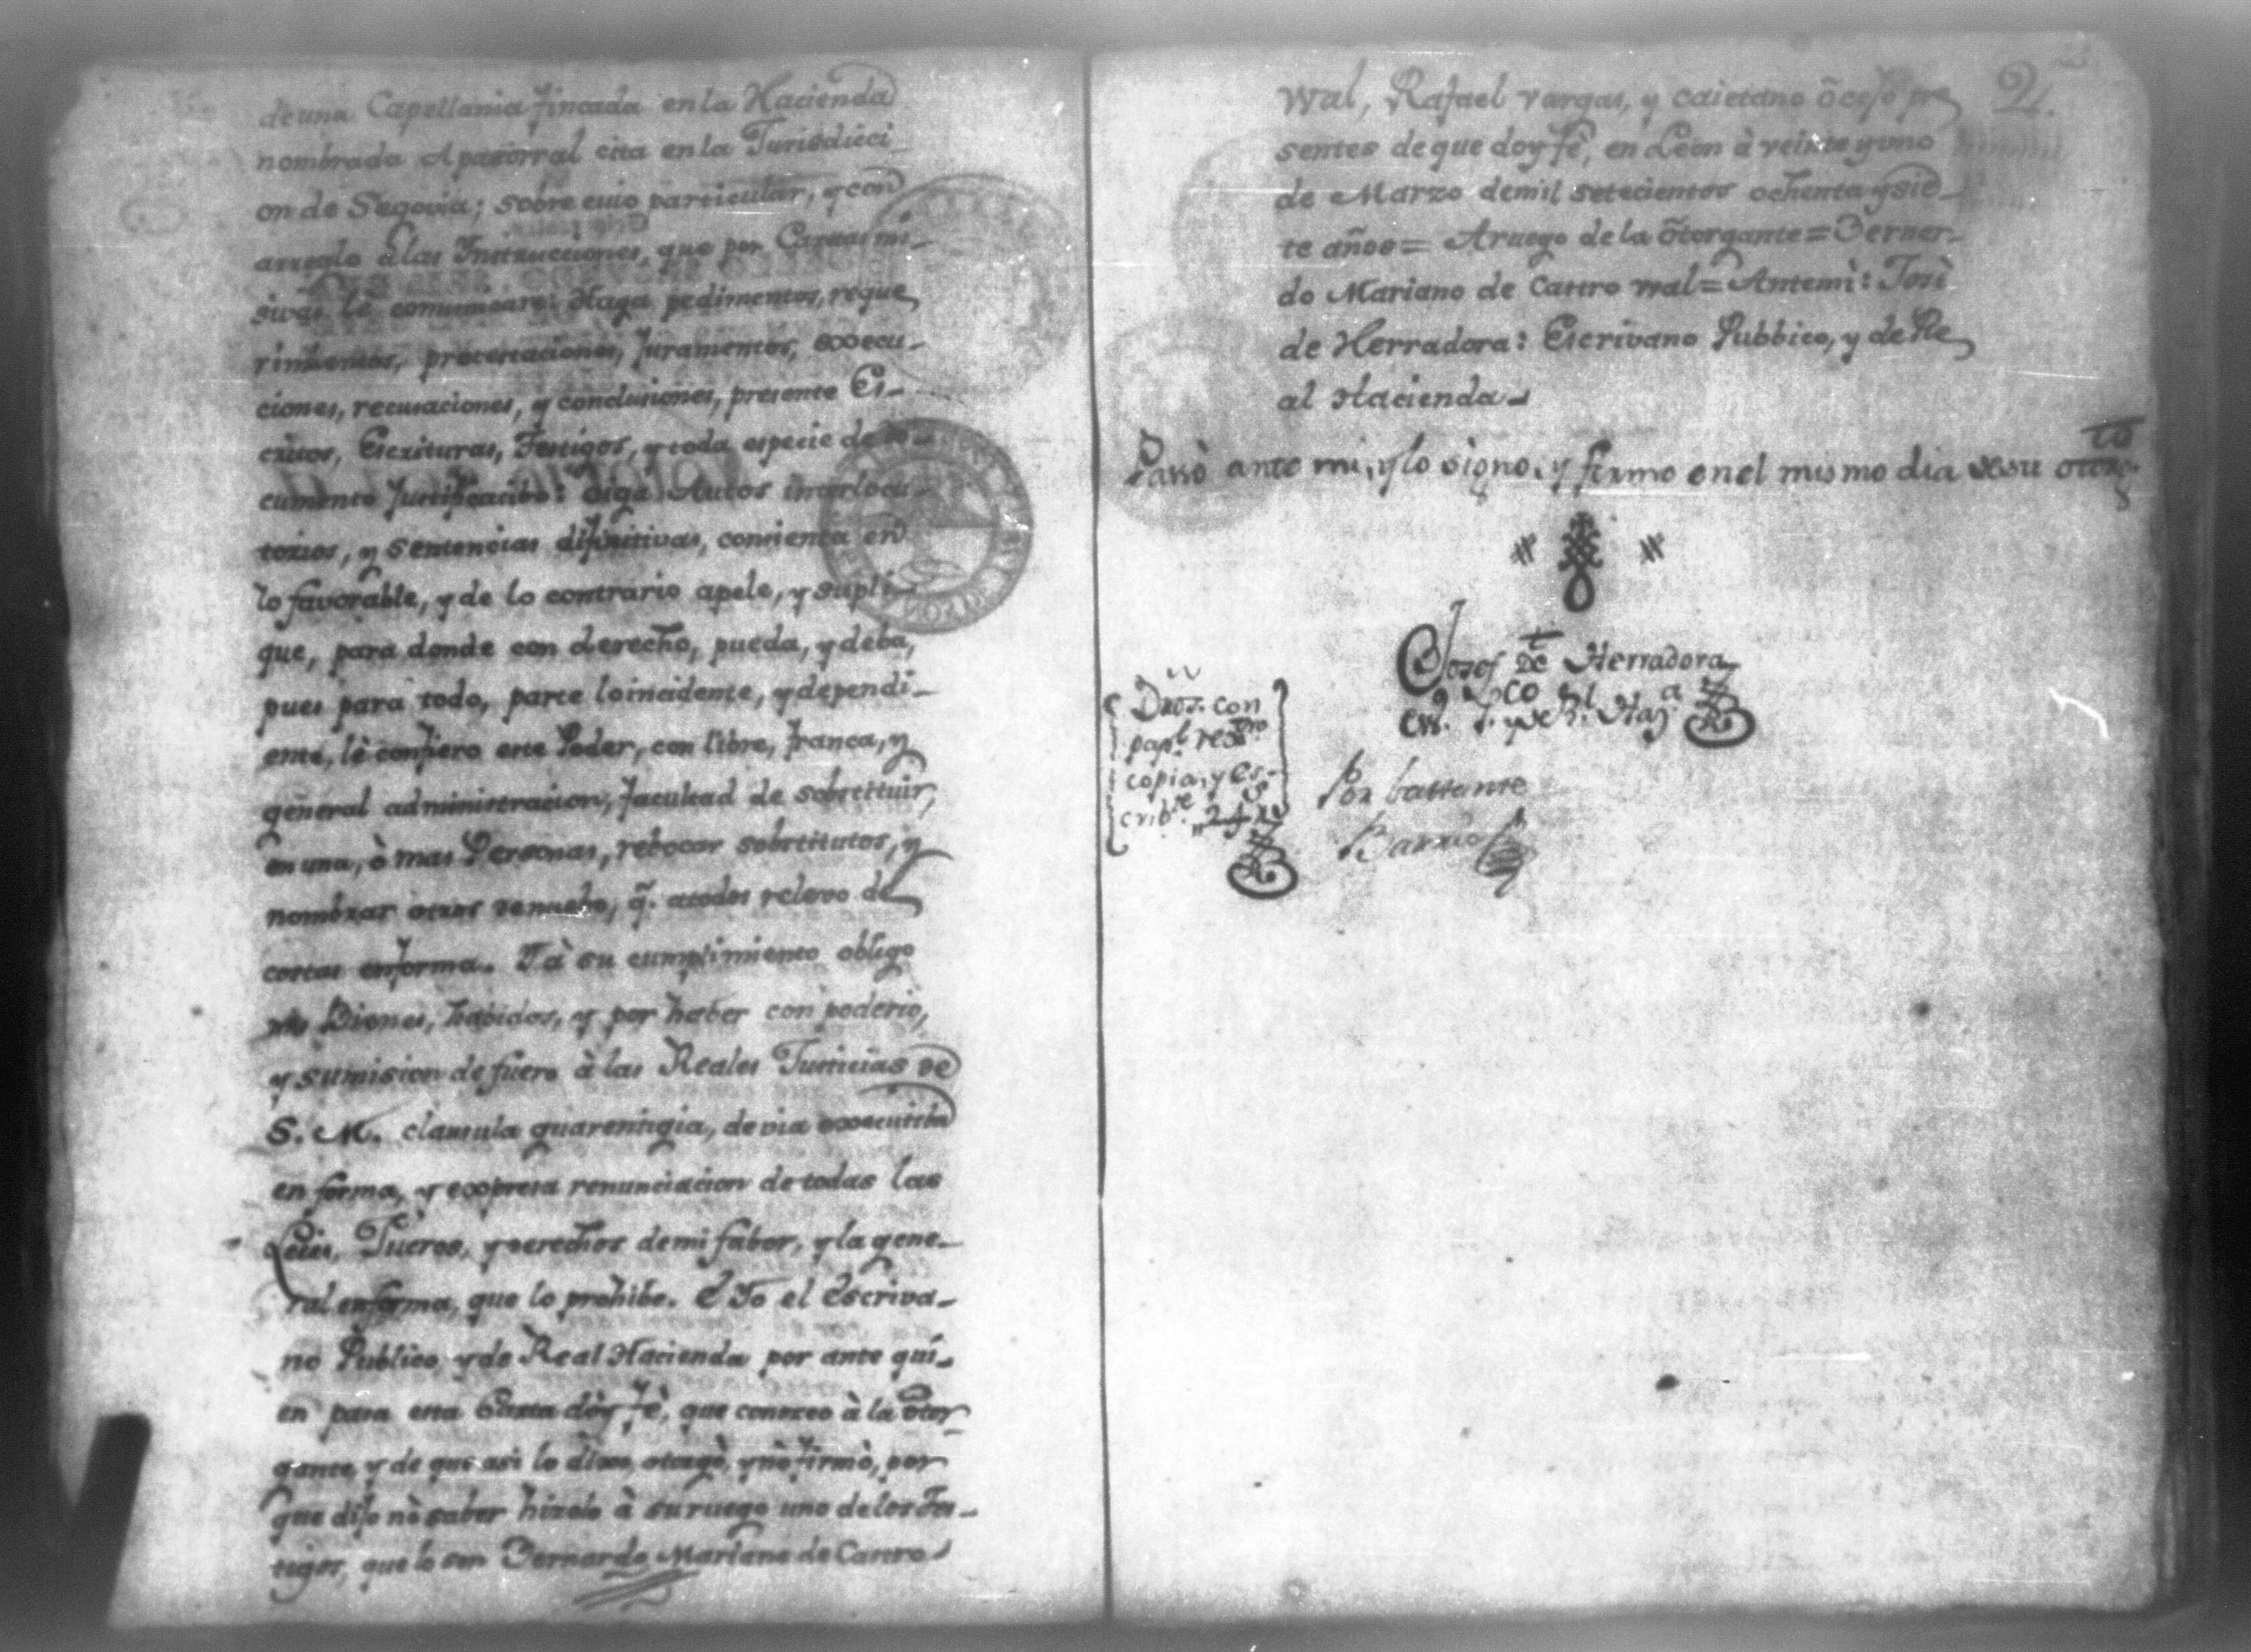 de una Capellania fincada en la Hacienda
nombrada Apasorral cita en la Jurisdicci_
on de Segovia; sobre cuio particular, y con
arreglo à las Instrucciones, que por Cartas mi_
sivas le comunicare: Haga pedimentos, reque_
rimientos, protestaciones, Juramentos, execu_
ciones, recusaciones, y conclusiones, presente Es_
critos, Escrituras, Testigos, y toda especie de Do_
cumento Justificatibo: oiga Autos interlocu_
torios, y sentencias difinitivas, consienta en
lo favorable, y de lo contrario apele, y supli_
que, para donde con derecho, pueda, y deba,
pues para todo, parte lo incidente, y dependi_
ente, le confiero este Poder, con libre, franca, y
general administracion, facultad de sobstituir,
en una, ò mas Personas, rebocar sobstitutos, y
nombrar otros de nuebo, q. atodos relevo de
costas enforma. Y à su cumplimiento obligo
mis Bienes, habidos, y por haber con poderio,
y sumision de fuero à las Reales Justicias de
S. M. clausula guarentigia, de via executiba
en forma, y expresa renunciacion de todas las
Leies, Fueros, y derechos de mi fabor, y la gene_
ral enforma, que lo prohibe. E Yo el Escriva_
no Publico, y de Real Hacienda por ante qui_
en pasa esta Carta dòy fè, que conozco à la otor_
gante, y de que asi lo dixo, otorgò, y nò firmò, por
que dijo nò saber hizolo à su ruego uno de los Tes_
tigos, que lo son Bernardo Mariano de Castro
2.
wal, Rafael Vargas, y Caietano pre_
sentes de que doy fè, en Leon à veinte y uno
de Marzo de mil setecientos ochenta y sie_
te años= A ruego de la ôtorgante= Bernar_
do Mariano de Castro wal= Antemì: Josè
de Herradora: Escrivano Pubbico, y de Re_
al Hacienda_
Passò ante mi, y lo signo, y firmo en el mismo dia de su otorg.to
Josef de Herradora
Po. y de Rl. Haz.a
con
copia, y es-
crib.
Por bastante
Barrio